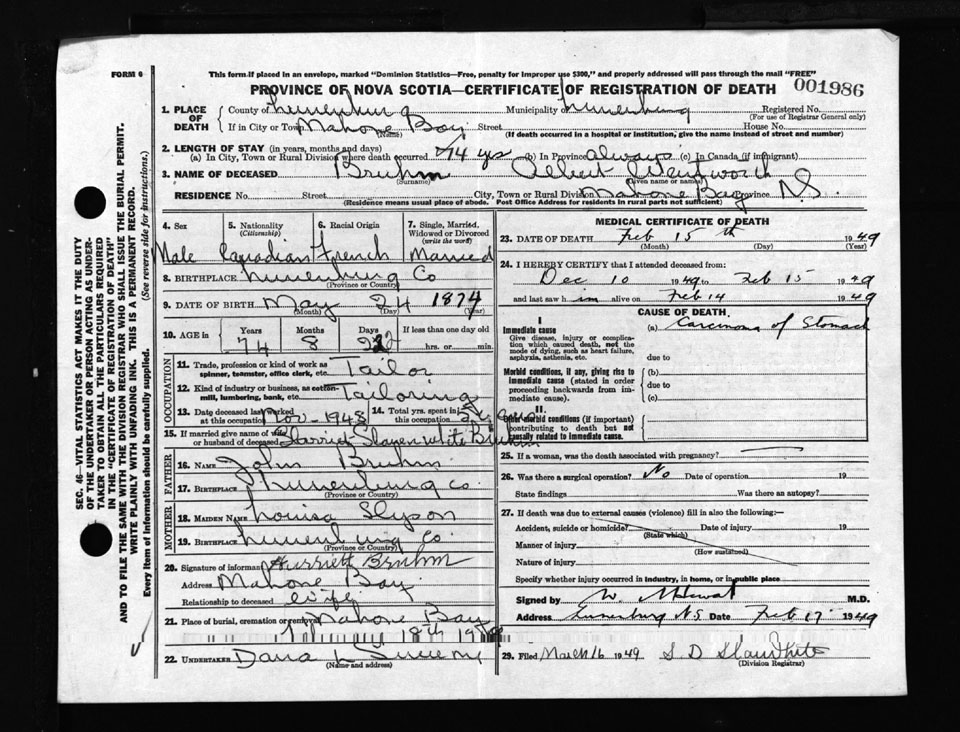 FORM 6
This form if placed in an envelope, marked "Dominion Statistics—Free, penalty for improper use $300," and properly addressed will pass through the mail "FREE"
PROVINCE OF NOVA SCOTIA—CERTIFICATE OF REGISTRATION OF DEATH 001986
1. PLACE OF DEATH County of Lunenburg Municipality of Lunenburg Registered No. (For use of Registrar General only)
If in City or Town Mahone Bay (Name) Street House No.
(If death occurred in a hospital or institution, give the name instead of street and number)
2. LENGTH OF STAY (in years, months and days)
(a) In City, Town or Rural Division where death occurred 74 yrs (b) In Province always (c) In Canada (if immigrant)
3. NAME OF DECEASED Bruhm (Surname) Albert Wentworth (Given name or names)
RESIDENCE No. Street City, Town or Rural Division Mahone Bay Province N.S.
(Residence means usual place of abode. Post Office Address for residents in rural parts not sufficient)
4. Sex Male
5. Nationality (Citizenship) Canadian
6. Racial Origin French
7. Single, Married, Widowed or Divorced (write the word) Married
8. BIRTHPLACE Lunenburg Co (Province or Country)
9. DATE OF BIRTH May (Month) 24 (Day) 1874 (Year)
10. AGE in Years Months Days If less than one day
74 8 hrs. or min.
11. Trade, profession or kind of work as spinner, teamster, office clerk, etc. Tailor
12. Kind of industry or business, as cotton-mill, lumbering, bank, etc. Tailoring
13. Date deceased last worked at this occupation Nov - 1948 14. Total yrs. spent in this occupation
15. If married give name of wife or husband of deceased Harriet Bruhm
FATHER
16. NAME John Bruhm
17. BIRTHPLACE Lunenburg Co. (Province or Country)
MOTHER
18. MAIDEN NAME Louisa
19. BIRTHPLACE Lunenburg Co. (Province or Country)
20. Signature of informant Harriett Bruhm
Address Mahone Bay
Relationship to deceased wife
21. Place of burial, cremation or removal Mahone Bay
18th
22. UNDERTAKER Dana L (Name and address)
MEDICAL CERTIFICATE OF DEATH
23. DATE OF DEATH Feb 15th (Month) (Day) 1949
24. I HEREBY CERTIFY that I attended deceased from:
Dec 10 1949 to Feb 15 1949
and last saw him alive on Feb 14 1949
CAUSE OF DEATH
I
Immediate cause (a) Carcinoma of Stomach
Give disease, injury or complication which caused death, not the mode of dying, such as heart failure, asphyxia, asthenia, etc. due to
Morbid conditions, if any, giving rise to immediate cause (stated in order proceeding backwards from immediate cause). (b)
due to
(c)
II.
Other morbid conditions (if important) contributing to death but not causally related to immediate cause.
25. If a woman, was the death associated with pregnancy?
26. Was there a surgical operation? No Date of operation 19
State findings Was there an autopsy?
27. If death was due to external causes (violence) fill in also the following:—
Accident, suicide or homicide? (State which) Date of injury 19
Manner of injury (How sustained)
Nature of injury
Specify whether injury occurred in industry, in home, or in public place
Signed by M.D.
Address Lunenburg N.S. Date Feb 17 1949
29. Filed March 16 1949 S. D. Slauwhite (Division Registrar)
SEC. 46—VITAL STATISTICS ACT MAKES IT THE DUTY
OF THE UNDERTAKER OR PERSON ACTING AS UNDER-
TAKER TO OBTAIN ALL THE PARTICULARS REQUIRED
IN THE "CERTIFICATE OF REGISTRATION OF DEATH"
AND TO FILE THE SAME WITH THE DIVISION REGISTRAR WHO SHALL ISSUE THE BURIAL PERMIT.
WRITE PLAINLY WITH UNFADING INK. THIS IS A PERMANENT RECORD.
Every item of information should be carefully supplied. (See reverse side for instructions.)